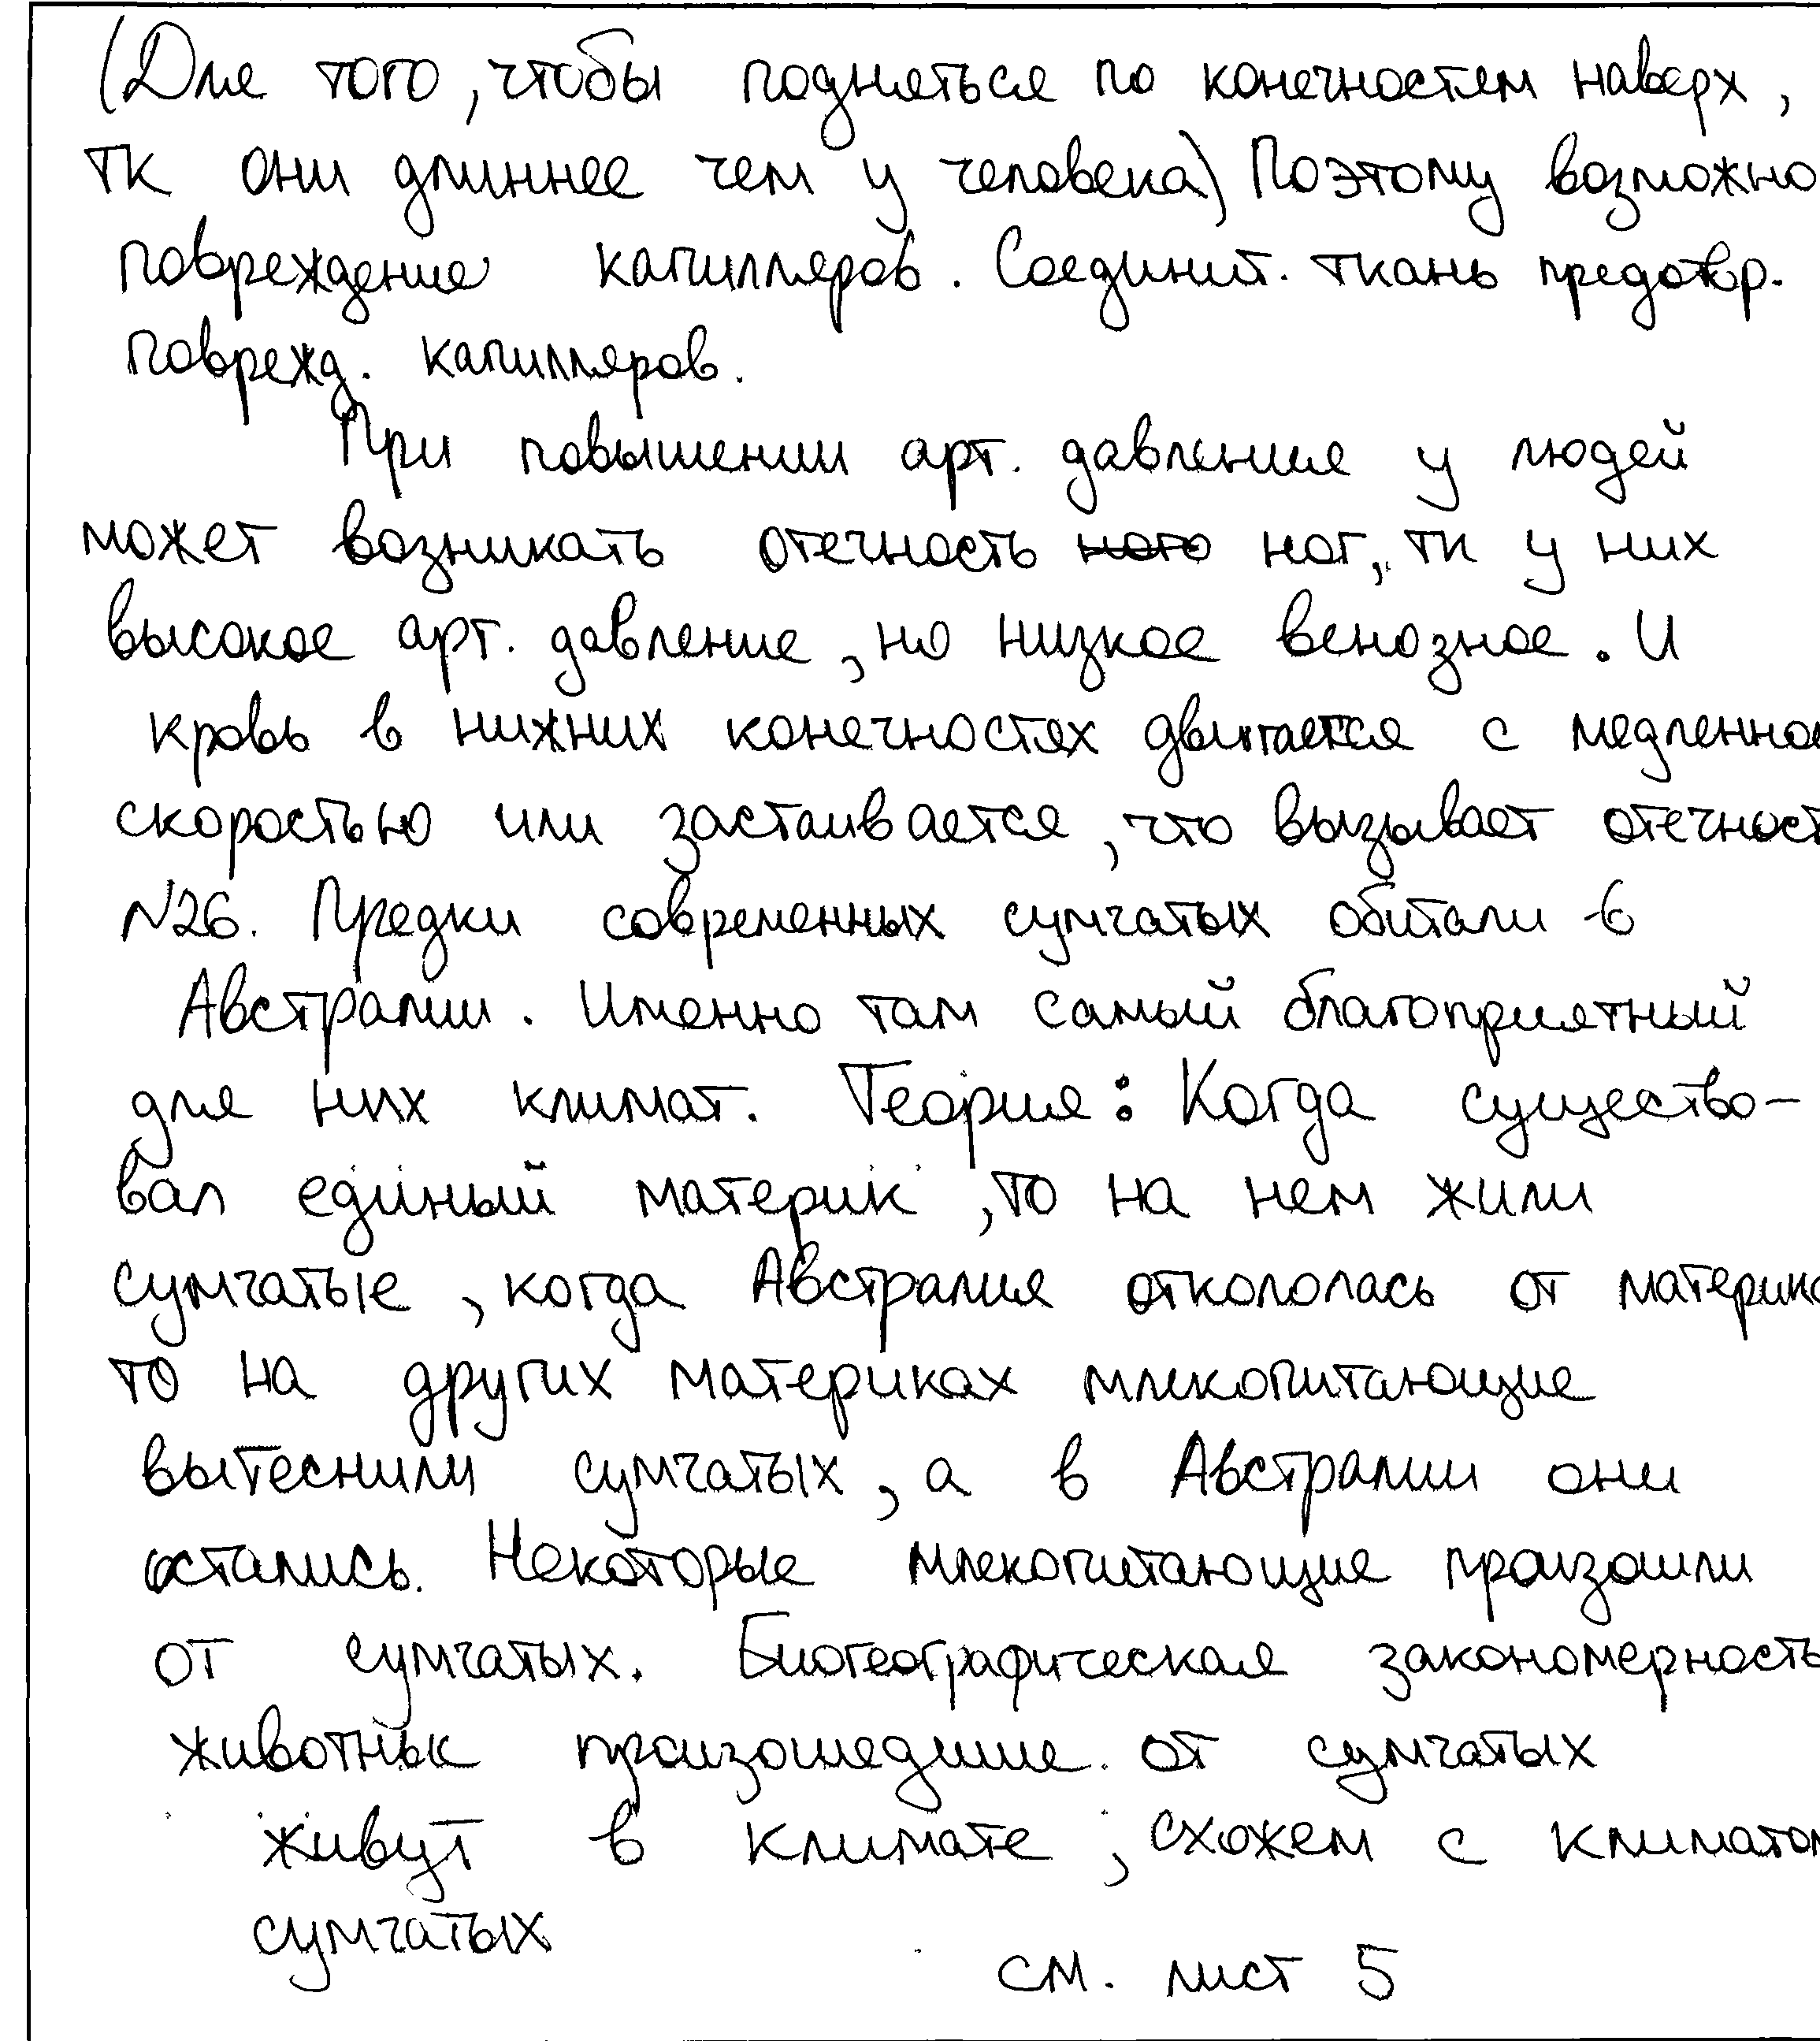 (Для того, чтобы подняться по конечностям наверх,
тк они длиннее чем у человека) Поэтому возможно
повреждение капилляров. Соединит. ткань предотвр.
поврежд. капилляров.
При повышении арт. давления у людей
может возникать отечность ного ног, тк у них
высокое арт. давление, но низкое венозное. И
кровь в нижних конечностях двигается с медленной
скоростью или застаивается, что вызывает отечност
N26. Предки современных сумчатых обитали в
Австралии. Именно там самый благоприятный
для них климат. Теория: Когда существо-
вал единый материк, то на нем жили
сумчатые, когда Австралия откололась от материка
то на других материках млекопитающие
вытеснили сумчатых, а в Австралии они
остались. Некоторые млекопитающие произошли
от сумчатых. Биогеографическая закономерность
животных произошедшие от сумчатых
живут в климате, схожем с климатом
сумчатых
см. лист 5